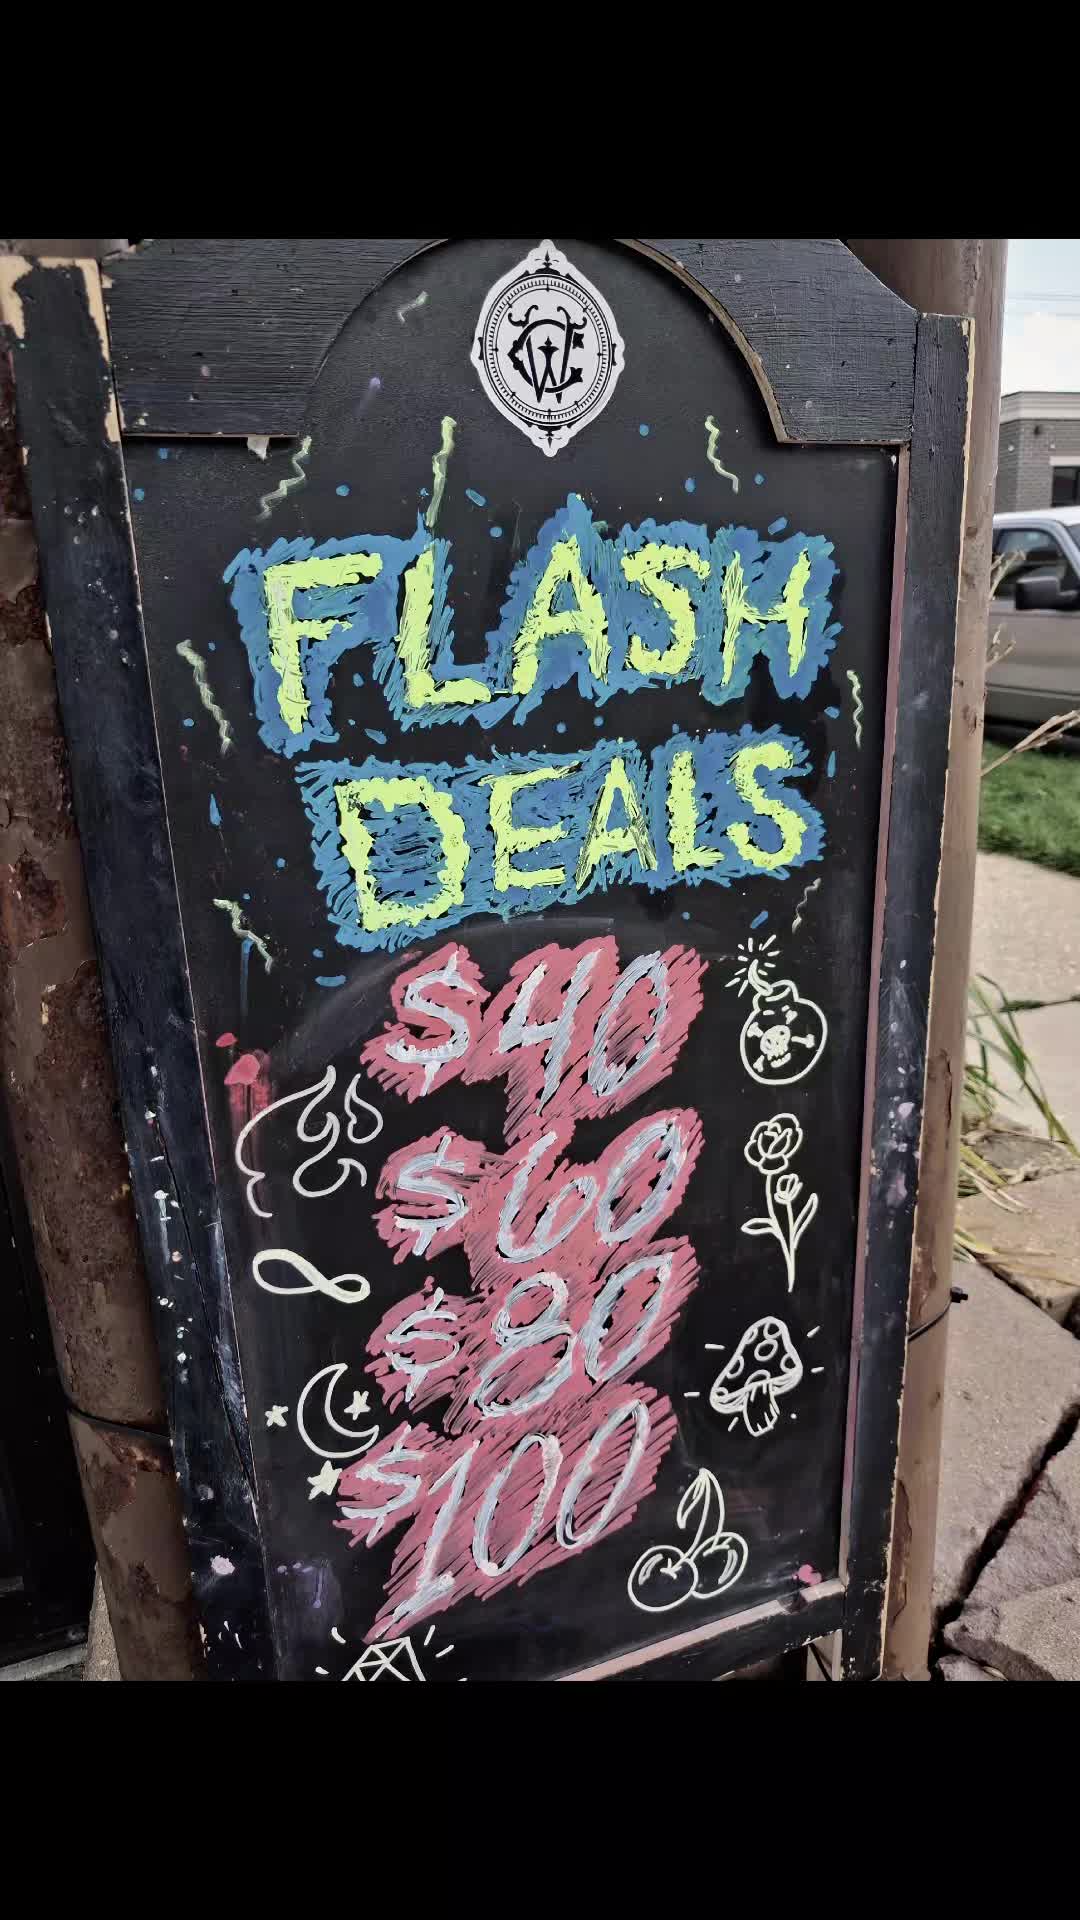 FLASH
DEALS
$40
$60
$80
$100